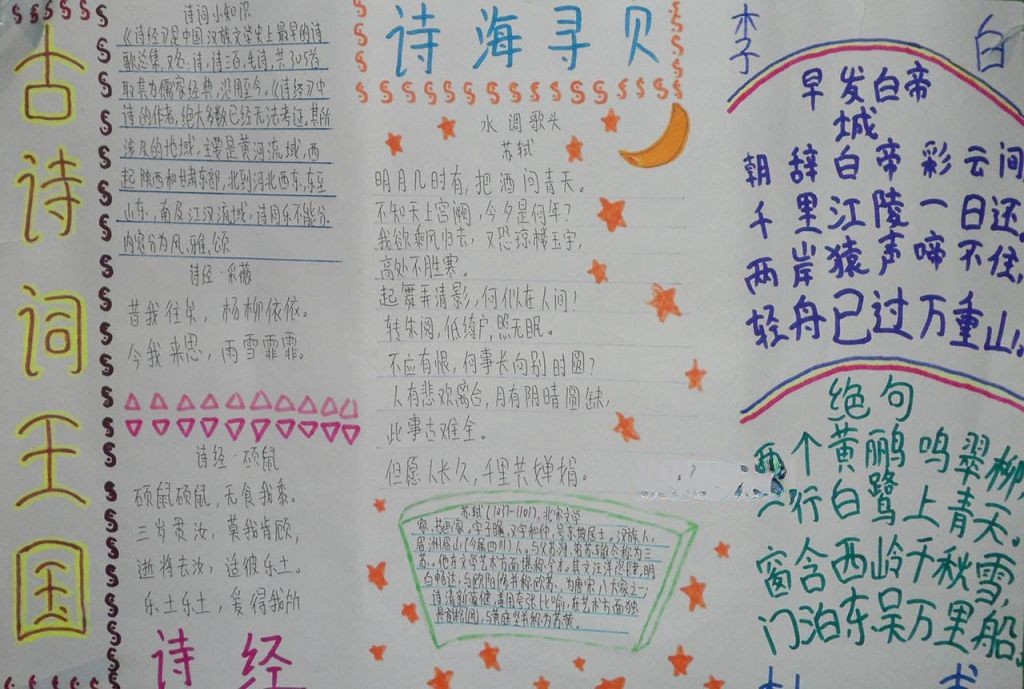 古诗词王国
诗词小知识
《诗经》是中国汉族文学史上最早的诗
歌总集,又名:诗,诗三百,毛诗,共305首
取其为儒家经典,沿用至今。《诗经》中
诗的作者,绝大多数已经无法考证。其所
涉及的地域,主要是黄河流域,西
起陕西和甘肃东部,北到河北西东,东至
山东,南及江汉流域,诗同乐不能分
内容分为风、雅、颂
诗经·采薇
昔我往矣,杨柳依依。
今我来思,雨雪霏霏。
诗经·硕鼠
硕鼠硕鼠,无食我黍。
三岁贯汝,莫我肯顾,
逝将去汝,适彼乐土。
乐土乐土,爰得我所
诗经
诗海寻贝
水调歌头
苏轼
明月几时有,把酒问青天。
不知天上宫阙,今夕是何年?
我欲乘风归去,又恐琼楼玉宇,
高处不胜寒。
起舞弄清影,何似在人间!
转朱阁,低绮户,照无眠。
不应有恨,何事长向别时圆?
人有悲欢离合,月有阴晴圆缺,
此事古难全。
但愿人长久,千里共婵娟。
苏轼(1037-1101),北宋文学
家,书画家。字子瞻,又字和仲,号东坡居士。汉族人,
眉州眉山(今属四川)人。与父苏洵,弟苏辙合称为三
苏。他在文学艺术方面堪称全才。其文汪洋恣肆,明
白畅达,与欧阳修并称欧苏,为唐宋八大家之一;
诗清新豪健,善用夸张比喻,在艺术方面独
具有格,与黄庭坚并称为苏黄。
李白
早发白帝
城
朝辞白帝彩云间
千里江陵一日还。
两岸猿声啼不住,
轻舟已过万重山。
绝句
两个黄鹂鸣翠柳,
一行白鹭上青天。
窗含西岭千秋雪,
门泊东吴万里船。